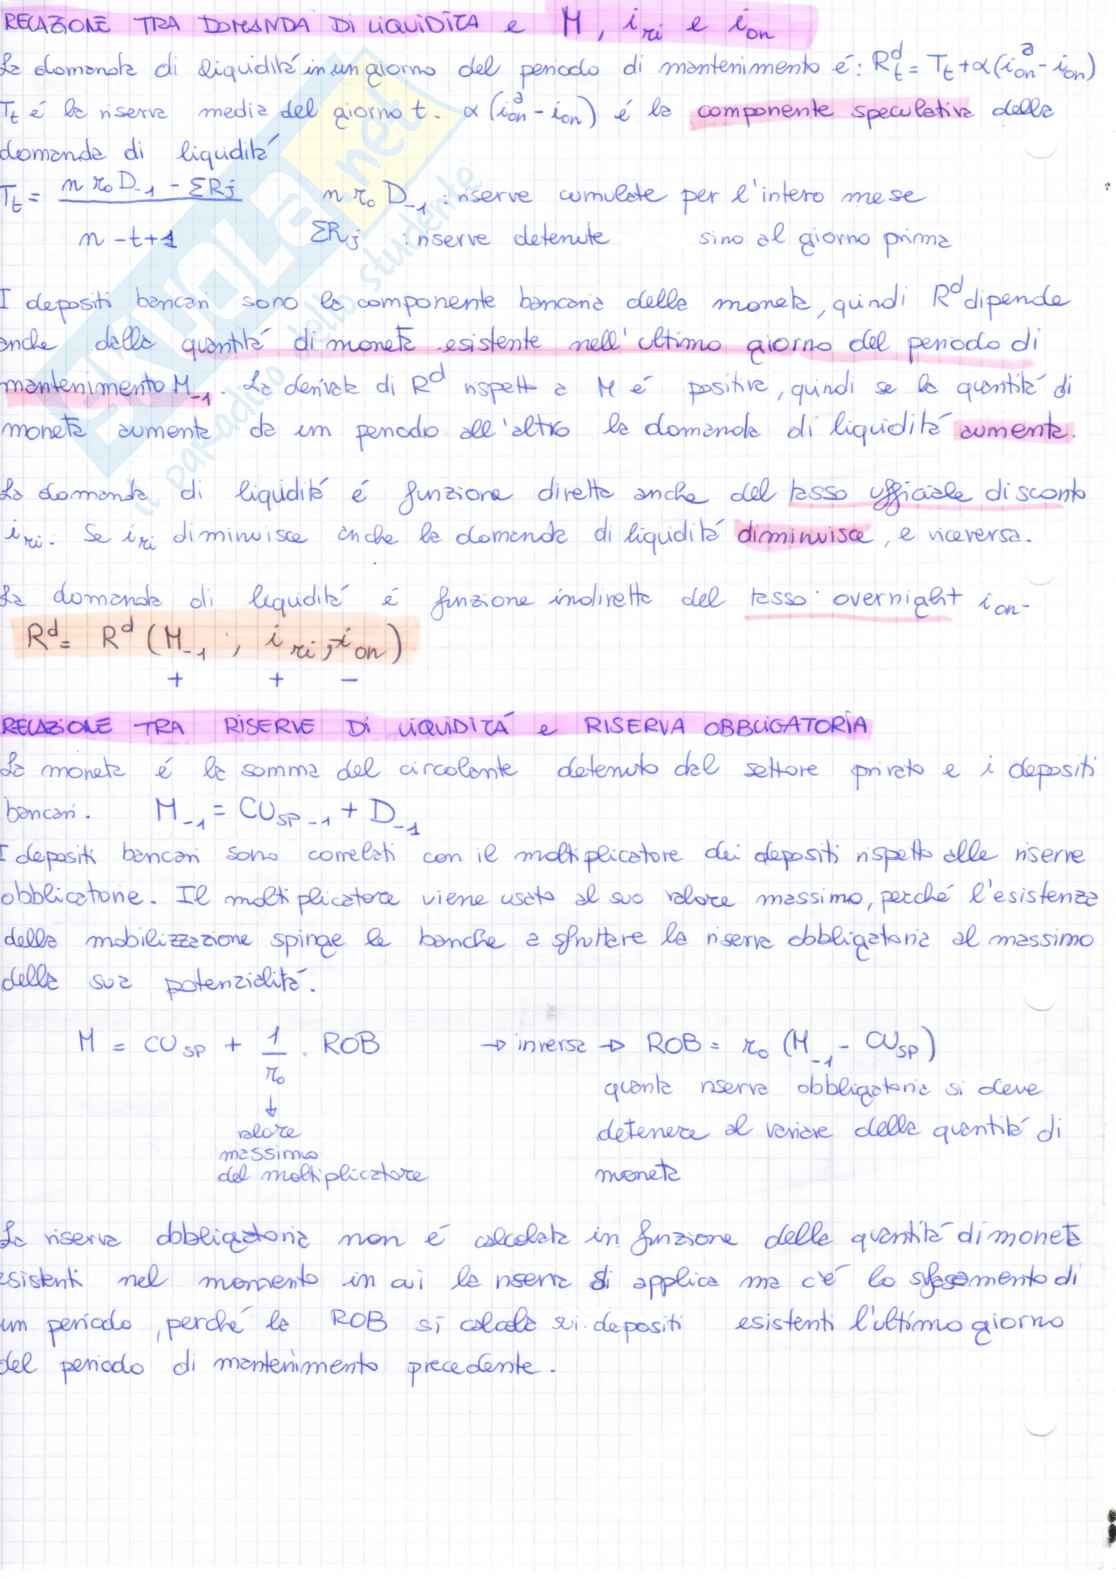 RELAZIONE TRA DOMANDA DI LIQUIDITÀ e M, i_ri e i_on
La domanda di liquidità in un giorno del periodo di mantenimento é: R^d_t = T_t + α(i^a_on - i_on)
T_t é la riserva media del giorno t. α(i^a_on - i_on) é la componente speculativa della
domanda di liquidità
T_t = (n r_o D_-1 - ΣR_j) / (n - t + 1) n r_o D_-1 : riserve cumulate per l'intero mese
ΣR_j : riserve detenute sino al giorno prima
I depositi bancari sono la componente bancaria della moneta, quindi R^d dipende
anche dalla quantità di moneta esistente nell'ultimo giorno del periodo di
mantenimento M_-1. La derivata di R^d rispett a M é positiva, quindi se la quantità di
moneta aumenta da un periodo all'altro la domanda di liquidità aumenta.
La domanda di liquidità é funzione diretta anche del tasso ufficiale di sconto
i_ri. Se i_ri diminuisce anche la domanda di liquidità diminuisce, e viceversa.
La domanda di liquidità é funzione indiretta del tasso overnight i_on.
R^d = R^d (M_-1 ; i_ri ; i_on)
+ + -
RELAZIONE TRA RISERVE DI LIQUIDITÁ e RISERVA OBBLIGATORIA
La moneta é la somma del circolante detenuto dal settore privato e i depositi
bancari. M_-1 = CU_SP-1 + D_-1
I depositi bancari sono correlati con il moltiplicatore dei depositi rispetto alle riserve
obbligatorie. Il moltiplicatore viene usato al suo valore massimo, perché l'esistenza
della mobilizzazione spinge le banche a sfruttare la riserva obbligatoria al massimo
della sua potenzialità.
M = CU_SP + 1/r_o · ROB → inversa → ROB = r_o (M_-1 - CU_SP)
↓ quanta riserva obbligatoria si deve
valore detenere al variare della quantità di
massimo moneta
del moltiplicatore
La riserva obbligatoria non é calcolata in funzione della quantità di moneta
esistenti nel momento in cui la riserva si applica ma c'é lo sfasamento di
um periodo, perché la ROB si calcola sui depositi esistenti l'ultimo giorno
del periodo di mantenimento precedente.